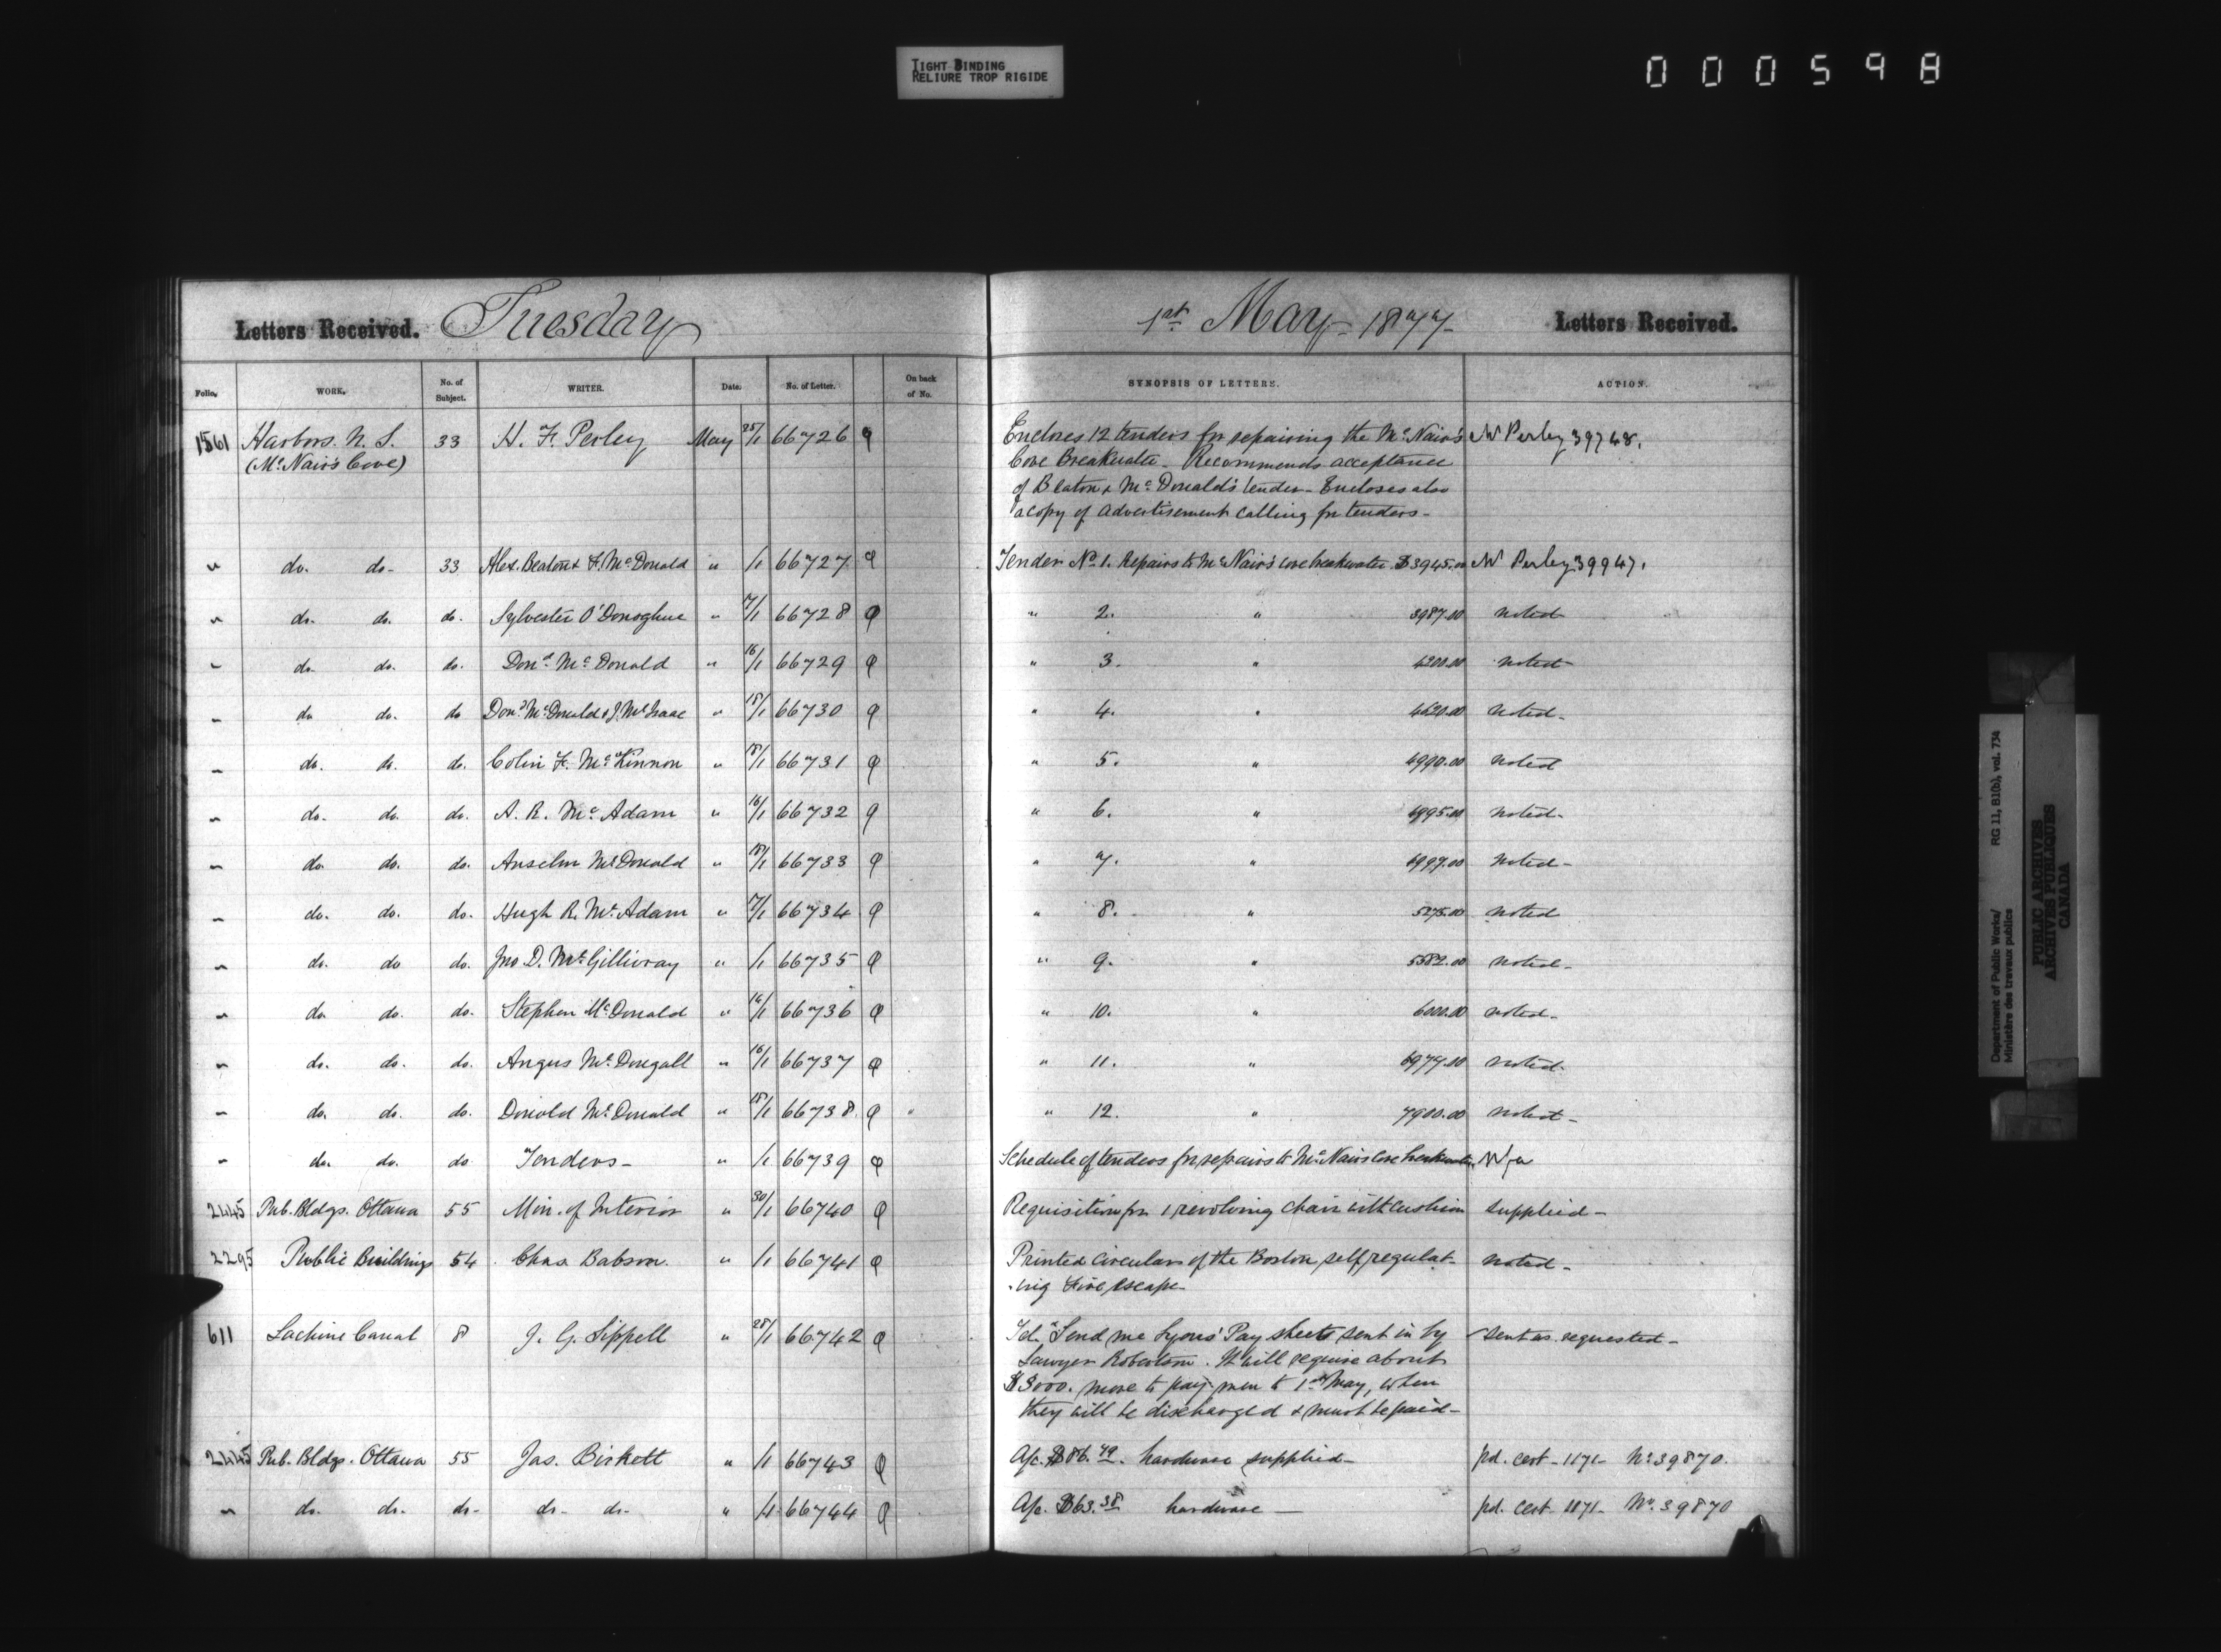 TIGHT BINDING
RELIURE TROP RIGIDE
000598
Letters Received. Tuesday 1st May 1877 Letters Received.
Folio. WORK. No. of Subject. WRITER. Date. No. of Letter. On back of No. SYNOPSIS OF LETTERS. ACTION.
1561 Harbors. N. S. 33 H. F. Perley May 25/1 66726 Encloses 12 tenders for repairing the McNair's W Perley 39748.
(McNair's Cove) Cove Breakwater. Recommends acceptance
of Beaton & McDonald's tender - Encloses also
a copy of advertisement calling for tenders -
" do. do- 33 Alex. Beaton & F. McDonald " /1 66727 Tender No 1. Repairs to McNair's cove breakwater $3945.00 W Perley 39947.
" do. do. do. Sylvester O'Donoghue " 17/1 66728 " 2. " 3987.00 noted
" do. do. do. Dond. McDonald " 16/1 66729 " 3. " 4200.00 noted
" do do. do Dond. McDonald & J. McIsaac " 18/1 66730 " 4. " 4620.00 noted-
" do. do. do. Colin F. McKinnon " 18/1 66731 " 5. " 4990.00 noted
" do. do. do. A. R. McAdam " 16/1 66732 " 6. " 4995.00 noted-
" do. do. do. Anselm McDonald " 18/1 66733 " 7. " 4997.00 noted-
" do. do. do. Hugh R. McAdam " 17/1 66734 " 8. " 5275.00 noted
" do. do do. Jno D. McGillivray " /1 66735 " 9. " 5582.00 noted-
" do do. do. Stephen McDonald " 16/1 66736 " 10. " 6000.00 noted-
" do. do. do. Angus McDougall " 16/1 66737 " 11. " 6977.00 noted-
" do. do. do. Donald McDonald " 18/1 66738 " 12. " 7900.00 noted-
" do. do. do Tenders- " /1 66739 Schedule of tenders for repairs to McNairs cove breakwater
2445 Pub. Bldgs. Ottawa 55 Min. of Interior " 30/1 66740 Requisition for 1 revolving chair with cushion supplied-
2295 Public Buildings 54 Chas Babson. " /1 66741 Printed circulars of the Boston self regulat- noted-
-ing Fire escape-
611 Lachine Canal 8 J. G. Sippell " 28/1 66742 Tel. "Send me Lyons' Pay sheets sent in by sent as requested-
Lawyer Robertson. It will require about
$3000. more to pay men to 1st May, when
they will be discharged & must be paid-
2445 Pub. Bldgs. Ottawa 55 Jas. Birkett " /1 66743 A/c. $86.49. hardware supplied- pd. cert- 1171- No 39870.
" do. do. do- do- do- " /1 66744 A/c. $63.38 hardware- pd. cert- 1171- No. 39870
Department of Public Works/
Ministère des travaux publics
RG 11, B1(b), vol. 734
PUBLIC ARCHIVES
ARCHIVES PUBLIQUES
CANADA